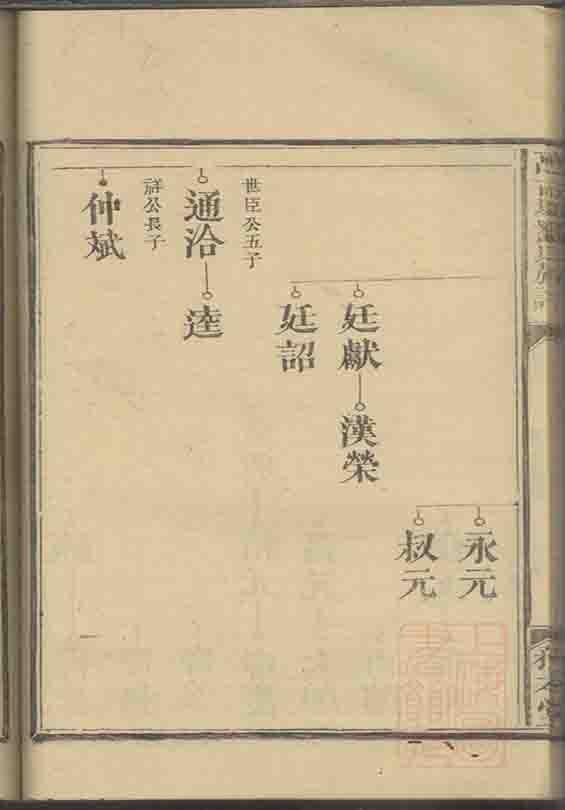 永元
叔元
廷獻 漢榮
廷詔
世臣公五子
通洽 逹
祥公長子
仲斌